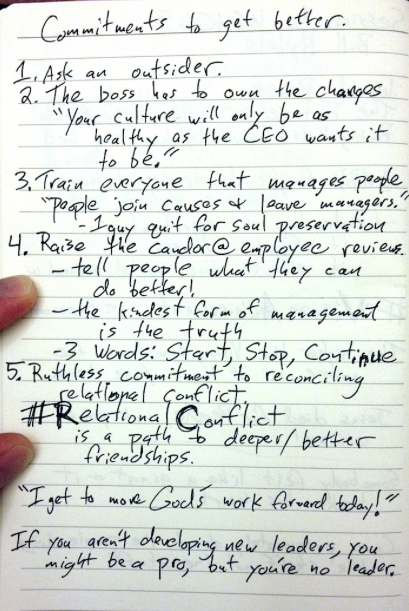 Commitments to get better.
1. Ask an outsider.
2. The boss has to own the changes
"Your culture will only be as
healthy as the CEO wants it
to be."
3. Train everyone that manages people
"people join causes & leave managers."
- 1 guy quit for soul preservation
4. Raise the candor @ employee reviews.
- tell people what they can
do better!
- the kindest form of management
is the truth
- 3 words: Start, Stop, Continue
5. Ruthless commitment to reconciling
relational conflict.
#Relational Conflict
is a path to deeper/better
friendships.
"I get to move God's work forward today!"
If you aren't developing new leaders, you
might be a pro, but you're no leader.